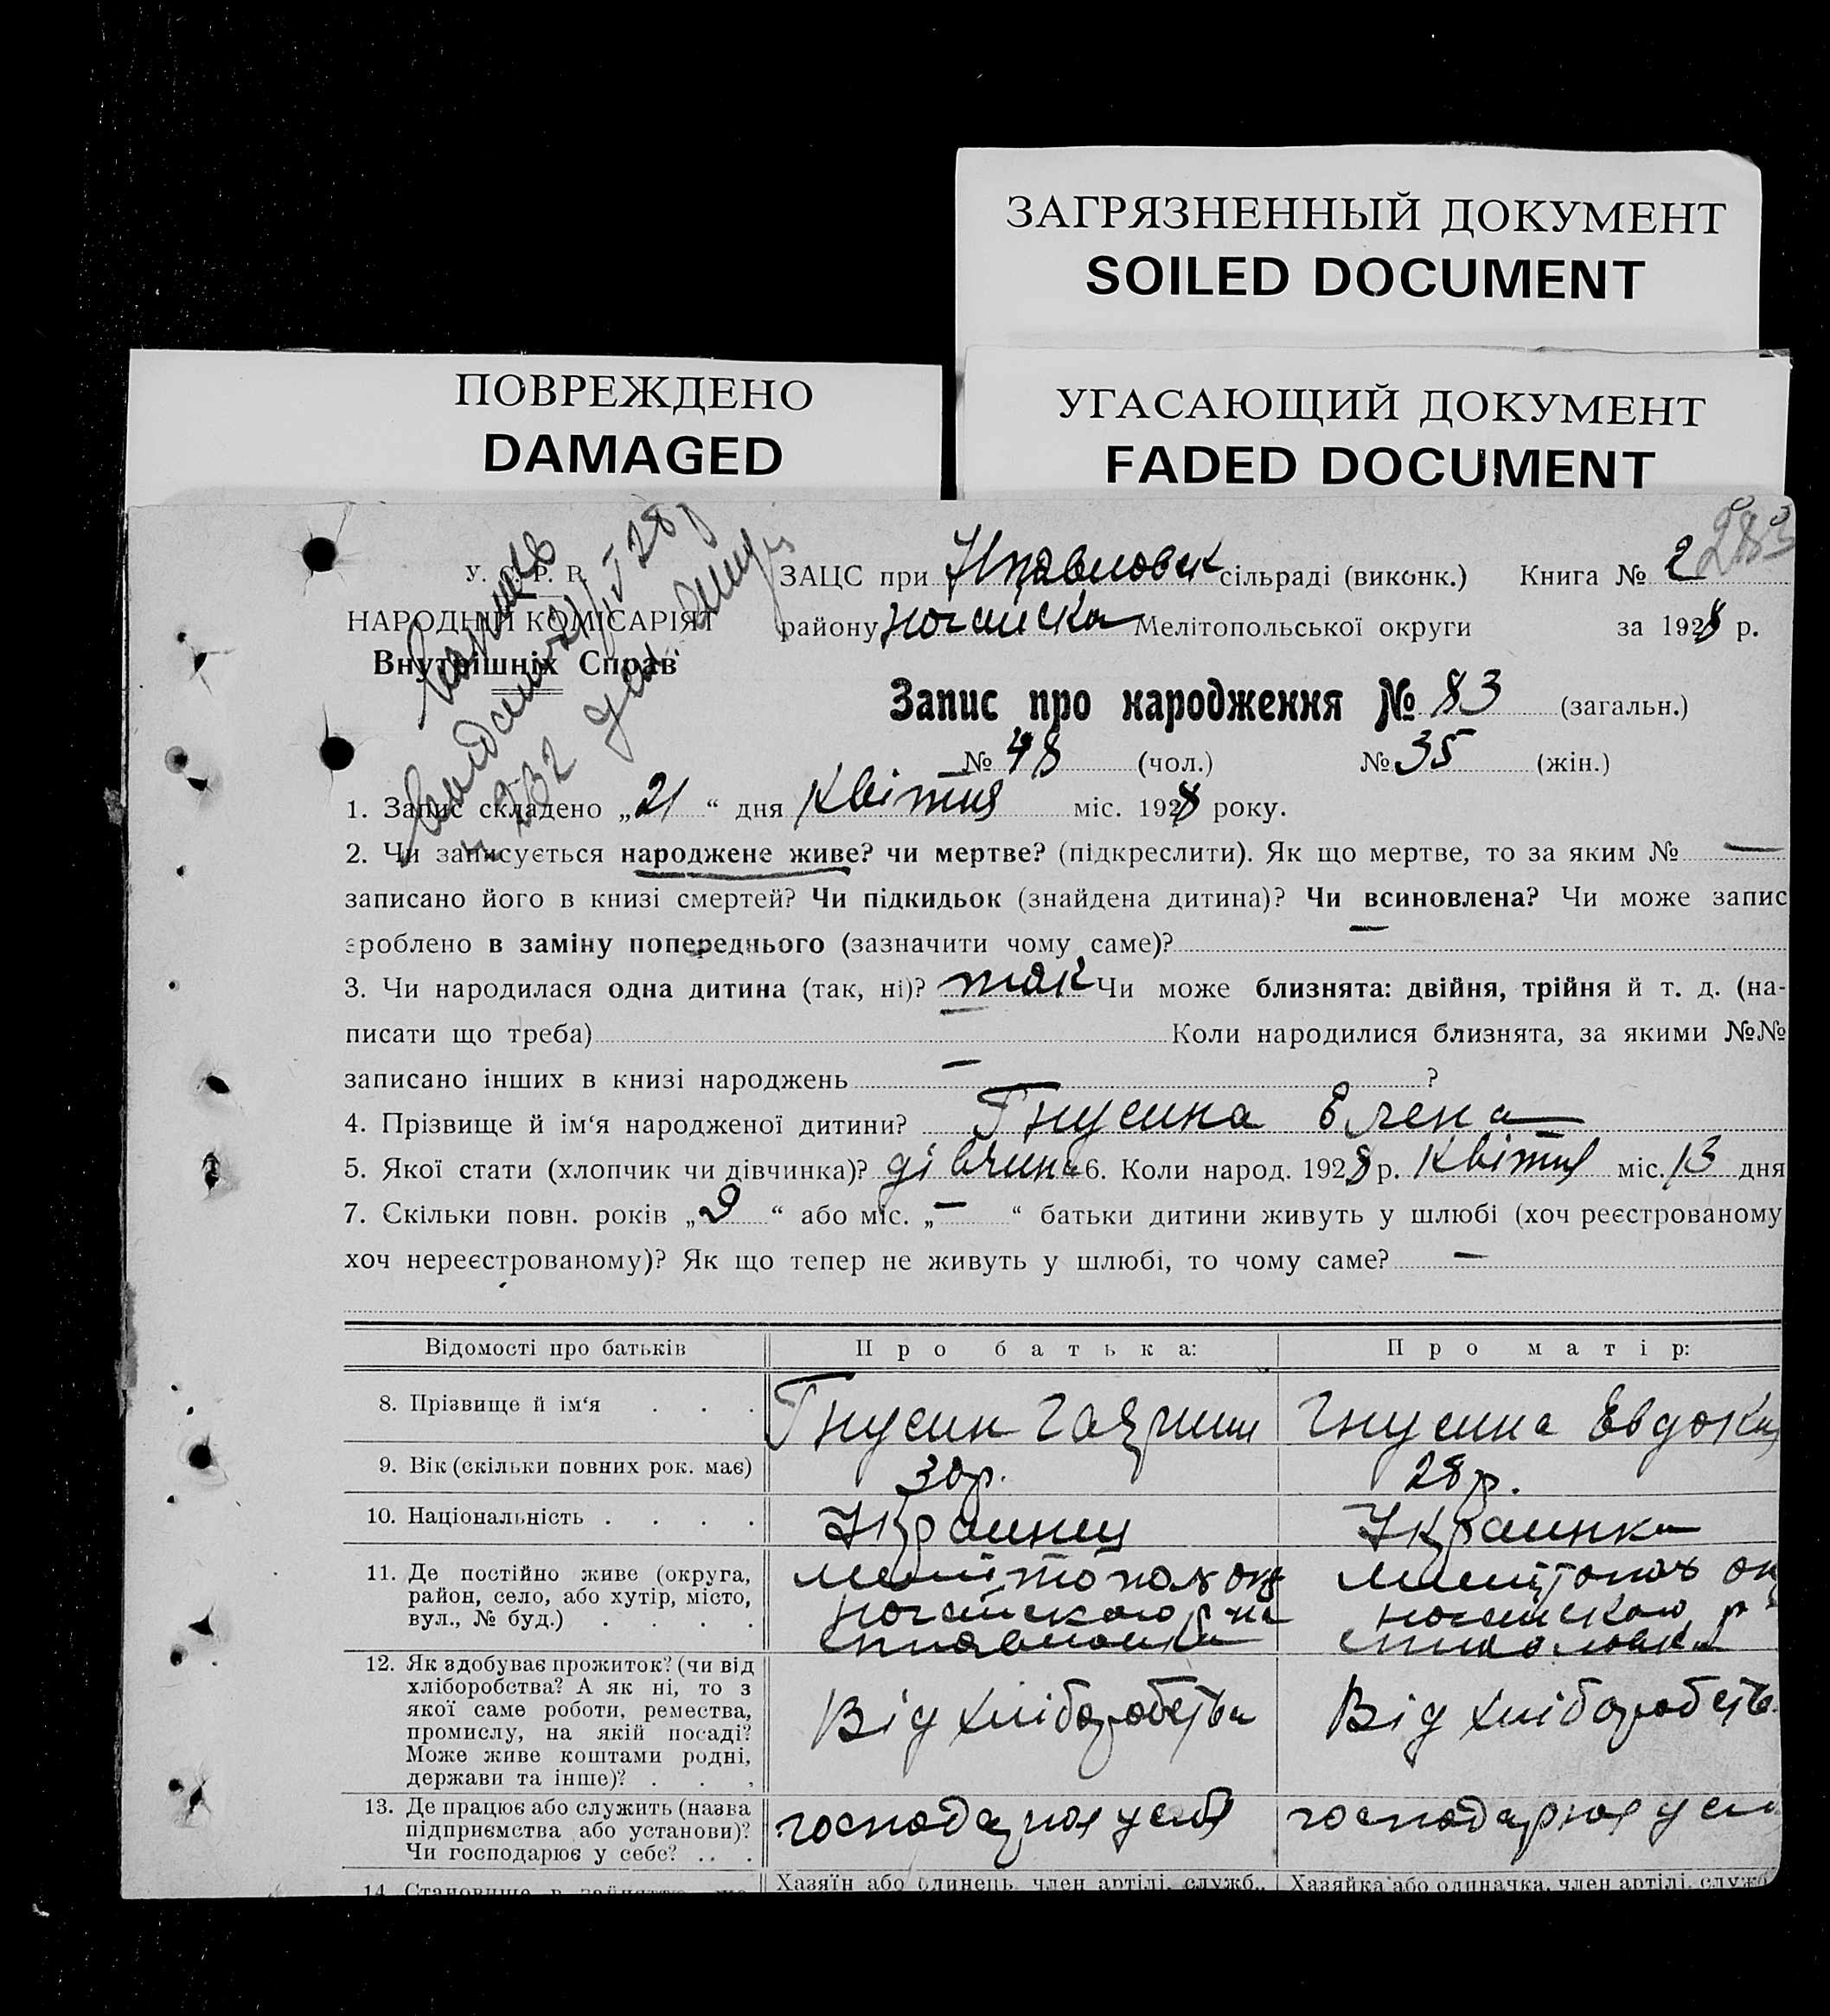 ЗАГРЯЗНЕННЫЙ ДОКУМЕНТ
SOILED DOCUMENT
ПОВРЕЖДЕНО
DAMAGED
УГАСАЮЩИЙ ДОКУМЕНТ
FADED DOCUMENT
283
У. С. Р. Р.
НАРОДНІЙ КОМІСАРІЯТ
Внутрішніх Справ
ЗАЦС при сільраді (виконк.) Книга № 2
району Ногайска Мелітопольської округи за 1928 р.
Запис про народження № 83 (загальн.)
№ 48 (чол.) № 35 (жін.)
1. Запис складено „21“ дня Квітня міс. 1928 року.
2. Чи записується народжене живе? чи мертве? (підкреслити). Як що мертве, то за яким № —
записано його в книзі смертей? Чи підкидьок (знайдена дитина)? Чи всиновлена? Чи може запис
зроблено в заміну попереднього (зазначити чому саме)? —
3. Чи народилася одна дитина (так, ні)? так Чи може близнята: двійня, трійня й т. д. (на-
писати що треба) Коли народилися близнята, за якими №№
записано інших в книзі народжень — ?
4. Прізвище й ім‘я народженої дитини? Гнусина Елена
5. Якої стати (хлопчик чи дівчинка)? дівчина 6. Коли народ. 1928 р. Квітня міс. 13 дня
7. Скільки повн. років „9“ або міс. „—“ батьки дитини живуть у шлюбі (хоч реєстрованому
хоч нереєстрованому)? Як що тепер не живуть у шлюбі, то чому саме? —
Відомості про батьків Про батька: Про матір:
8. Прізвище й ім‘я . . . Гнусин Гнусина Евдоки
9. Вік (скільки повних рок. має) 30р. 28р.
10. Національність . . . . Украинец Украинка
11. Де постійно живе (округа,
район, село, або хутір, місто,
вул., № буд.) . . . .
Мелітопол ок
Ногайского р на
Мелітопол ок
Ногайского р
12. Як здобуває прожиток? (чи від
хліборобства? А як ні, то з
якої саме роботи, ремества,
промислу, на якій посаді?
Може живе коштами родні,
держави та інше)? . . .
Від хліборобства
Від хліборобств
13. Де працює або служить (назва
підприємства або установи)?
Чи господарює у себе? . . .
господарює у себя
господарює у се
14. Становище в занятті
Хазяїн або одинець, член артілі, служб.,
Хазяйка або одиначка, член артілі, служб